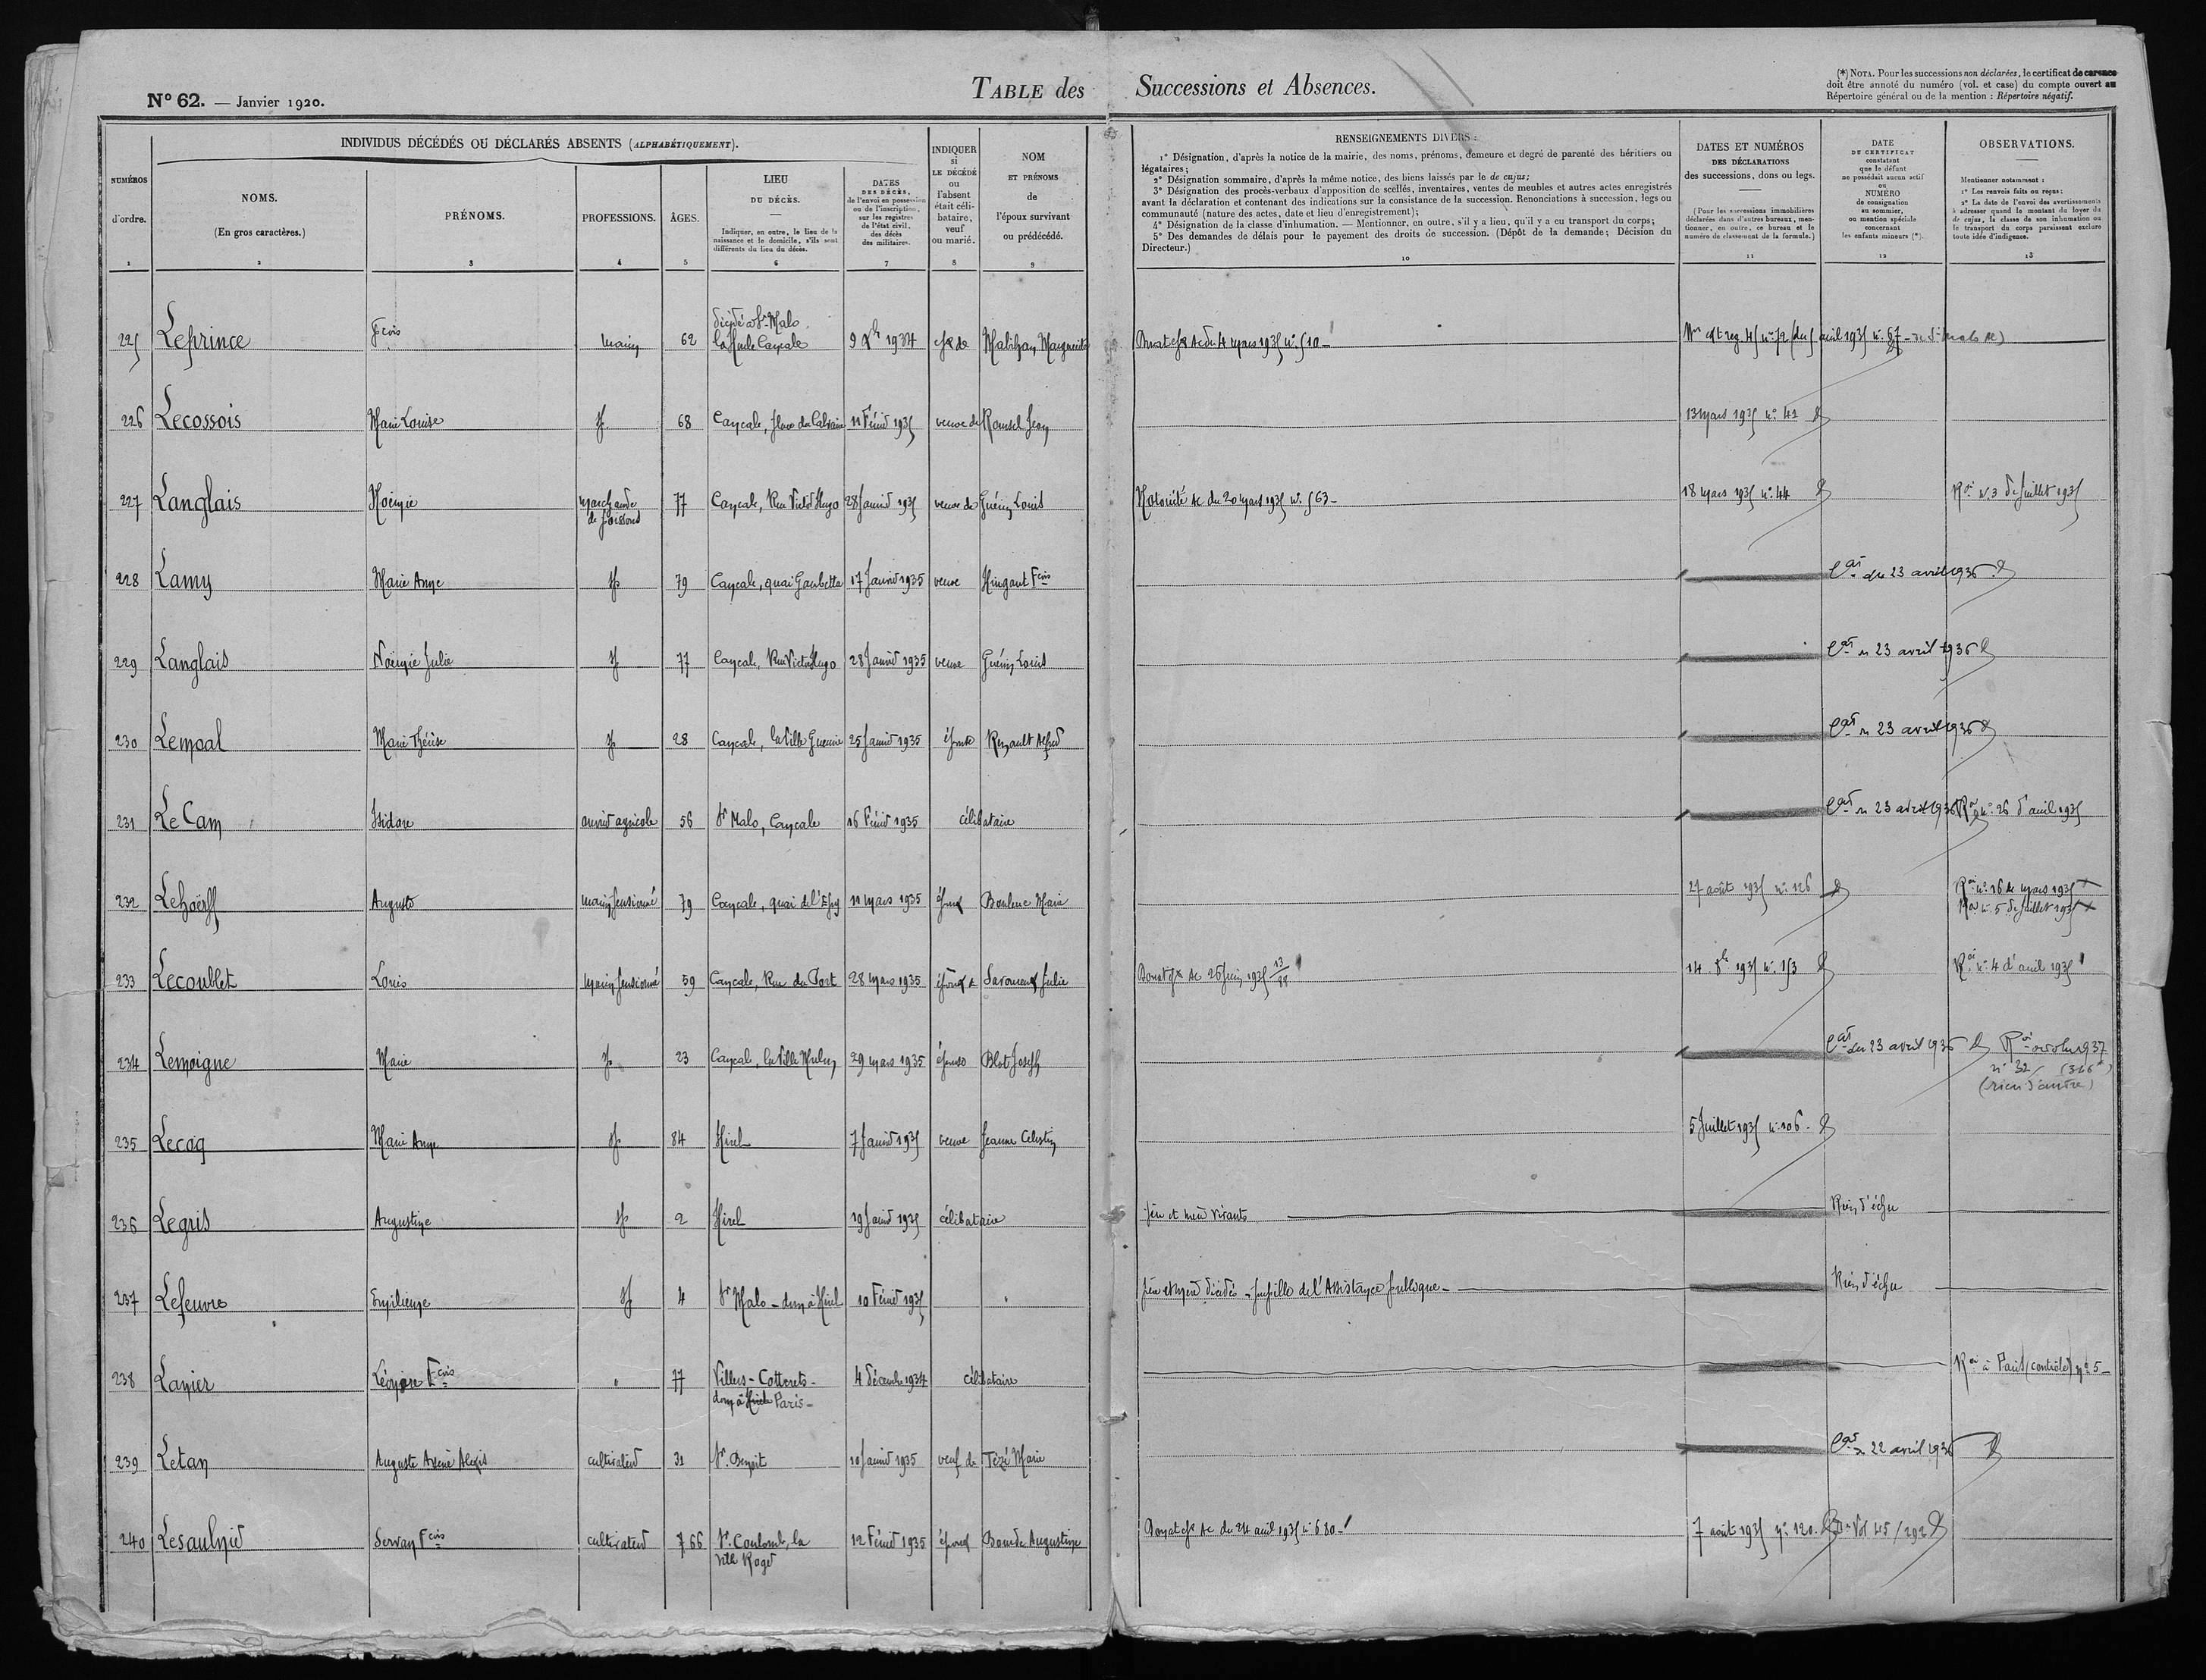 N° 62. — Janvier 1920.
TABLE des Successions et Absences.
(*) NOTA. Pour les successions non déclarées, le certificat de carence
doit être annoté du numéro (vol. et case) du compte ouvert au
Répertoire général ou de la mention : Répertoire négatif.
NUMÉROS
d'ordre.
1
INDIVIDUS DÉCÉDÉS OU DÉCLARÉS ABSENTS (ALPHABÉTIQUEMENT).
NOMS.
(En gros caractères.)
2
PRÉNOMS.
3
PROFESSIONS.
4
ÂGES.
5
LIEU
DU DÉCÈS.
Indiquer, en outre, le lieu de la
naissance et le domicile, s'ils sont
différents du lieu du décès.
6
DATES
DES DÉCÈS,
de l'envoi en possession
ou de l'inscription,
sur les registres
de l'état civil,
des décès
des militaires.
7
INDIQUER
si
LE DÉCÉDÉ
ou
l'absent
était céli-
bataire,
veuf
ou marié.
8
NOM
ET PRÉNOMS
de
l'époux survivant
ou prédécédé.
9
RENSEIGNEMENTS DIVERS :
1° Désignation, d'après la notice de la mairie, des noms, prénoms, demeure et degré de parenté des héritiers ou
légataires;
2° Désignation sommaire, d'après la même notice, des biens laissés par le de cujus;
3° Désignation des procès-verbaux d'apposition de scellés, inventaires, ventes de meubles et autres actes enregistrés
avant la déclaration et contenant des indications sur la consistance de la succession. Renonciations à succession, legs ou
communauté (nature des actes, date et lieu d'enregistrement);
4° Désignation de la classe d'inhumation. — Mentionner, en outre, s'il y a lieu, qu'il y a eu transport du corps;
5° Des demandes de délais pour le payement des droits de succession. (Dépôt de la demande; Décision du
Directeur.)
10
DATES ET NUMÉROS
DES DÉCLARATIONS
des successions, dons ou legs.
(Pour les successions immobilières
déclarées dans d'autres bureaux, men-
tionner, en outre, ce bureau et le
numéro de classement de la formule.)
11
DATE
DU CERTIFICAT
constatant
que le défunt
ne possédait aucun actif
ou
NUMÉRO
de consignation
au sommier,
ou mention spéciale
concernant
les enfants mineurs (*).
12
OBSERVATIONS.
Mentionner notamment :
1° Les renvois faits ou reçus;
2° La date de l'envoi des avertissements
à adresser quand le montant du loyer du
de cujus, la classe de son inhumation ou
le transport du corps paraissent exclure
toute idée d'indigence.
13
225 Leprince Fcois marin 62 décédé à St-Malo
la Houle Cancale 9 Xbre 1934 époux de Marguerite du 4 mars 1935 n° 510 - avril 1935 n° 67
226 Lecossois Marie Louise 68 Cancale, place du Calvaire 11 Février 1935 veuve de Rousel Jean 13 mars 1935 n° 41
227 Langlais Noémie marchande
de poissons 77 Cancale, Rue Victor Hugo 28 Janvier 1935 veuve de Guérin Louis Notoriété Ac du 20 mars 1935 n° 563 - 18 mars 1935 n° 44 Roi n° 3 de Juillet 1935
228 Lamy Marie Ange 79 Cancale, quai Gambetta 17 Janvier 1935 veuve Hingant Fcois Cat du 23 avril 1936
229 Langlais Noémie Julie 77 Cancale, Rue Victor Hugo 28 Janvier 1935 veuve Guérin Louis Cat 23 avril 1936
230 Lemoal Marie Thérèse 28 Cancale, la Ville 25 Janvier 1935 épouse Renault Alfred Cat 23 avril 1936
231 Le Cam Isidore ouvrier agricole 56 St Malo, Cancale 16 Février 1935 célibataire Cat 23 avril 1936 Roi n° 26 d'avril 1935
232 Lehoërff Auguste marin pensionné 79 Cancale, quai de l'Épi 11 mars 1935 époux Bouleuc Marie 27 août 1935 n° 126 Roi n° 16 de mars 1935
Roi n° 5 de Juillet 1935
233 Lecoublet Louis marin pensionné 59 Cancale, Rue du Port 28 mars 1935 époux Julie Donat époux Ac 26 Juin 1935 14 1935 n° 153 Roi n° 4 d'avril 1935
234 Lemoigne Marie 23 Cancale, la Ville 29 mars 1935 épouse Blot Joseph Cat du 23 avril 1936 Roi octobre 1937
n° 32
(rien d'autre)
235 Lecoq Marie Ange 84 Hirel 7 Janvier 1935 veuve Jeanne Célestin 5 Juillet 1935 n° 106 -
236 Legris Augustine 2 Hirel 19 Janvier 1935 célibataire père et mère vivants Rien d'échu
237 Lefeuvre Émilienne 4 St Malo - dom. à Hirel 10 Février 1935 père et mère décédés - pupille de l'Assistance publique - Rien d'échu
238 Lanier Fcois " 77 Villers-Cotterets -
dom. à Paris - 4 décembre 1934 célibataire Roi à Paris (contrôle) n° 5 -
239 Letan Auguste Alexis cultivateur 31 St. Benoit 10 Janvier 1935 veuf de Tézé Marie Cat 22 avril 1936
240 Lesaulnier Servan Fcois cultivateur 66 St. Coulomb, la
Ville Roger 12 Février 1935 époux Bourde Augustine Donat époux Ac du 24 avril 1935 n° 680 - 7 août 1935 n° 120. Vol 45/292